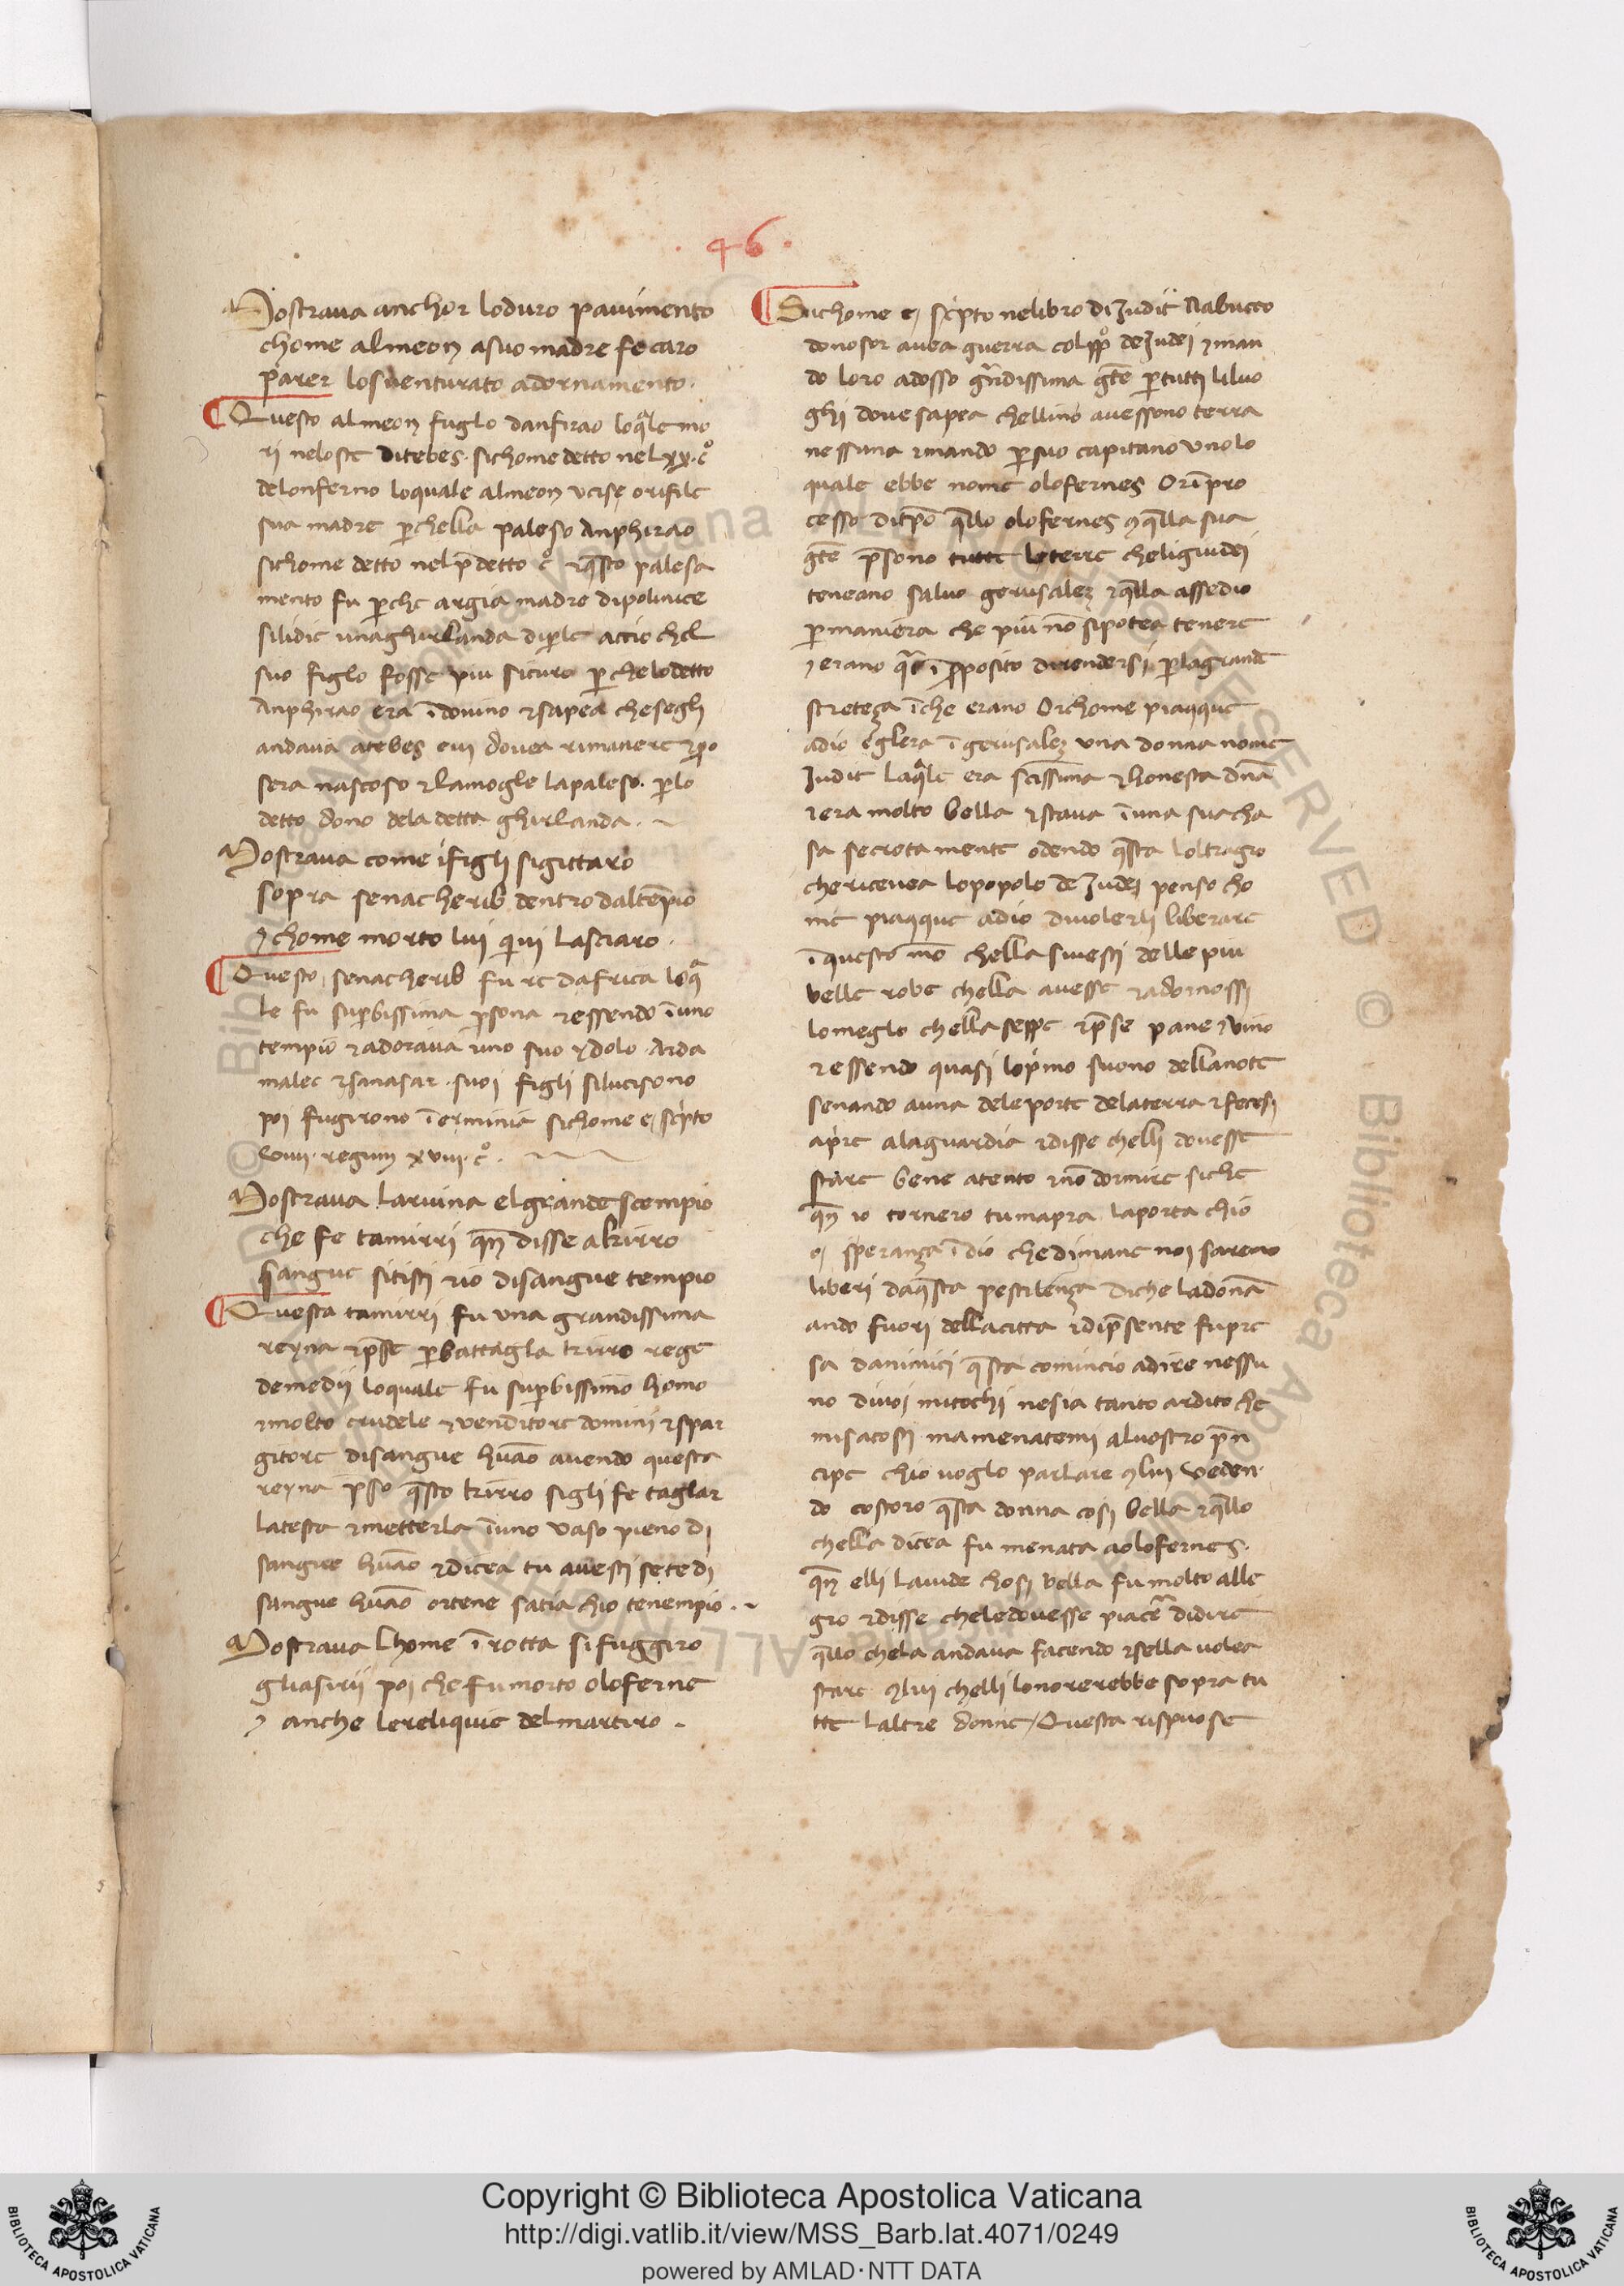 · 46 ·
Mostraua anchor loduro pauimento
chome almeon asuo madre fe caro
parer losuenturato adornamento·
Questo almeon fuglo danfirao loq̄le mo
ri neloste ditebes· sichome detto nel xx· c̊
delonferno loquale almeon ucise orifile
sua madre p̱chella paleso Anphirao
sichome detto nel p̄detto c̊ ⁊q̄sto palesa
mento fu p̱che argia madre dipolinice
silidie unaghirlanda diꝑle accio chel
suo figlo fosse piu sicuro ꝑchelodetto
Anphirao era īdouino ⁊sapea chesegli
andaua atebes eui douea rimanere ⁊ꝑo
sera nascoso ⁊lamogle lapaleso· ꝑlo
detto dono dela detta ghirlanda·
Mostraua come ifigli sigittaro
sopra senacherib dentro daltēpio
⁊chome morto lui qͥui lasciaro·
Questo senacherib fu re dafrica loq̄
le fu suꝑbissima ꝑsona ⁊essendo īuno
tempio ⁊adoraua uno suo ydolo· Arda
malec ⁊sanasar· suoi figli silucisono
poi fugirono ī erminia sichome e, sc̄pto
regum xviiij· c̊·
Mostraua laruina elgrande scempio
che fe tamirri qn̄ disse akirro
Sangue sitisti ⁊io disangue tempio
Questa tamirri fu una grandissima
reyna ⁊p̄se ꝑbattagla kirro rege
demedij loquale fu suꝑbissimo homo
⁊molto crudele ⁊uenditore domini ⁊spar
gitore disangue hūao auendo questa
reyna p̄so q̄sto kirro sigli fe taglar
latesta ⁊metterla īuno uaso pieno di
sangue hūao ⁊dicea tu auesti setedi
sangue hūao ortene satia chio tenempio·
Mostraua chome īrotta sifuggiro
gliasirij poi chefumorto oloferne
⁊ anche lereliquie delmartiro·
Sichome e, sc̄pto nelibro di Judit Nabucco
donosor auea guerra colꝓplo de Judei ⁊man
do loro adosso grādissima gēte ꝑtutti liluo
ghi doue sapea chellino auessono terra
nessuna ⁊mando ꝑsuo capitano uno lo
quale ebbe nome olofernes Orīpro
cesso ditp̄o q̄llo olofernes ⁊q̄lla sua
gēte p̄sono tutte leterre cheligiudei
teneano saluo gerusalez ⁊q̄lla assedio
ꝑmaniera che piu nō sipotea tenere
⁊erano q̄si īꝓposito direndersi ꝑlagrande
stretega īche erano Orchome piacque
adio eglera īgerusalez una donna nome
Judit laq̄le era scīssima ⁊honesta dn̄a
⁊era molto bella ⁊staua īuna suacha
sa secretamente odendo q̄sta loltragio
chericeuea lopopolo de Judei penso cho
me piacque adio diuolerli liberare
īquesto mō chella siuesti delle piu
belle robe chella auesse ⁊adornossi
lomeglo chella seppe ⁊p̄se pane ⁊uino
⁊essendo quasi lop̄mo suono dellanote
senando auna deleporte delaterra ⁊fecesi
ap̄re alaguardia ⁊disse chelli douesse
stare bene atento ⁊nō dormire siche
qn̄ io tornero tumapra laporta chio
o, speranza īdio chedimane noi saremo
liberi daq̄sta pestilenza Diche ladonā
ando fuori dellacitta ⁊dip̄sente fupre
sa danimici q̄sta comincio adire nessu
no diuoi mitochi nesia tanto ardito che
misacosti mamenatemi aluostro p̄n
cipe chio uoglo parlare ꝯlui Veden·
do costoro q̄sta donna cosi bella ⁊q̄llo
chella dicea fu menata aolofernes·
qn̄ elli lauide chosi bella fu molto alle
gro ⁊disse cheledouesse piacer̄ didire
q̄llo chela andaua facendo ⁊sella uolea
stare ꝯlui chelli lonorerebbe sopra tu
tte laltre donne/Questa rispuose
Copyright © Biblioteca Apostolica Vaticana
http://digi.vatlib.it/view/MSS_Barb.lat.4071/0249
powered by AMLAD·NTT DATA
BIBLIOTECA APOSTOLICA VATICANA
BIBLIOTECA APOSTOLICA VATICANA